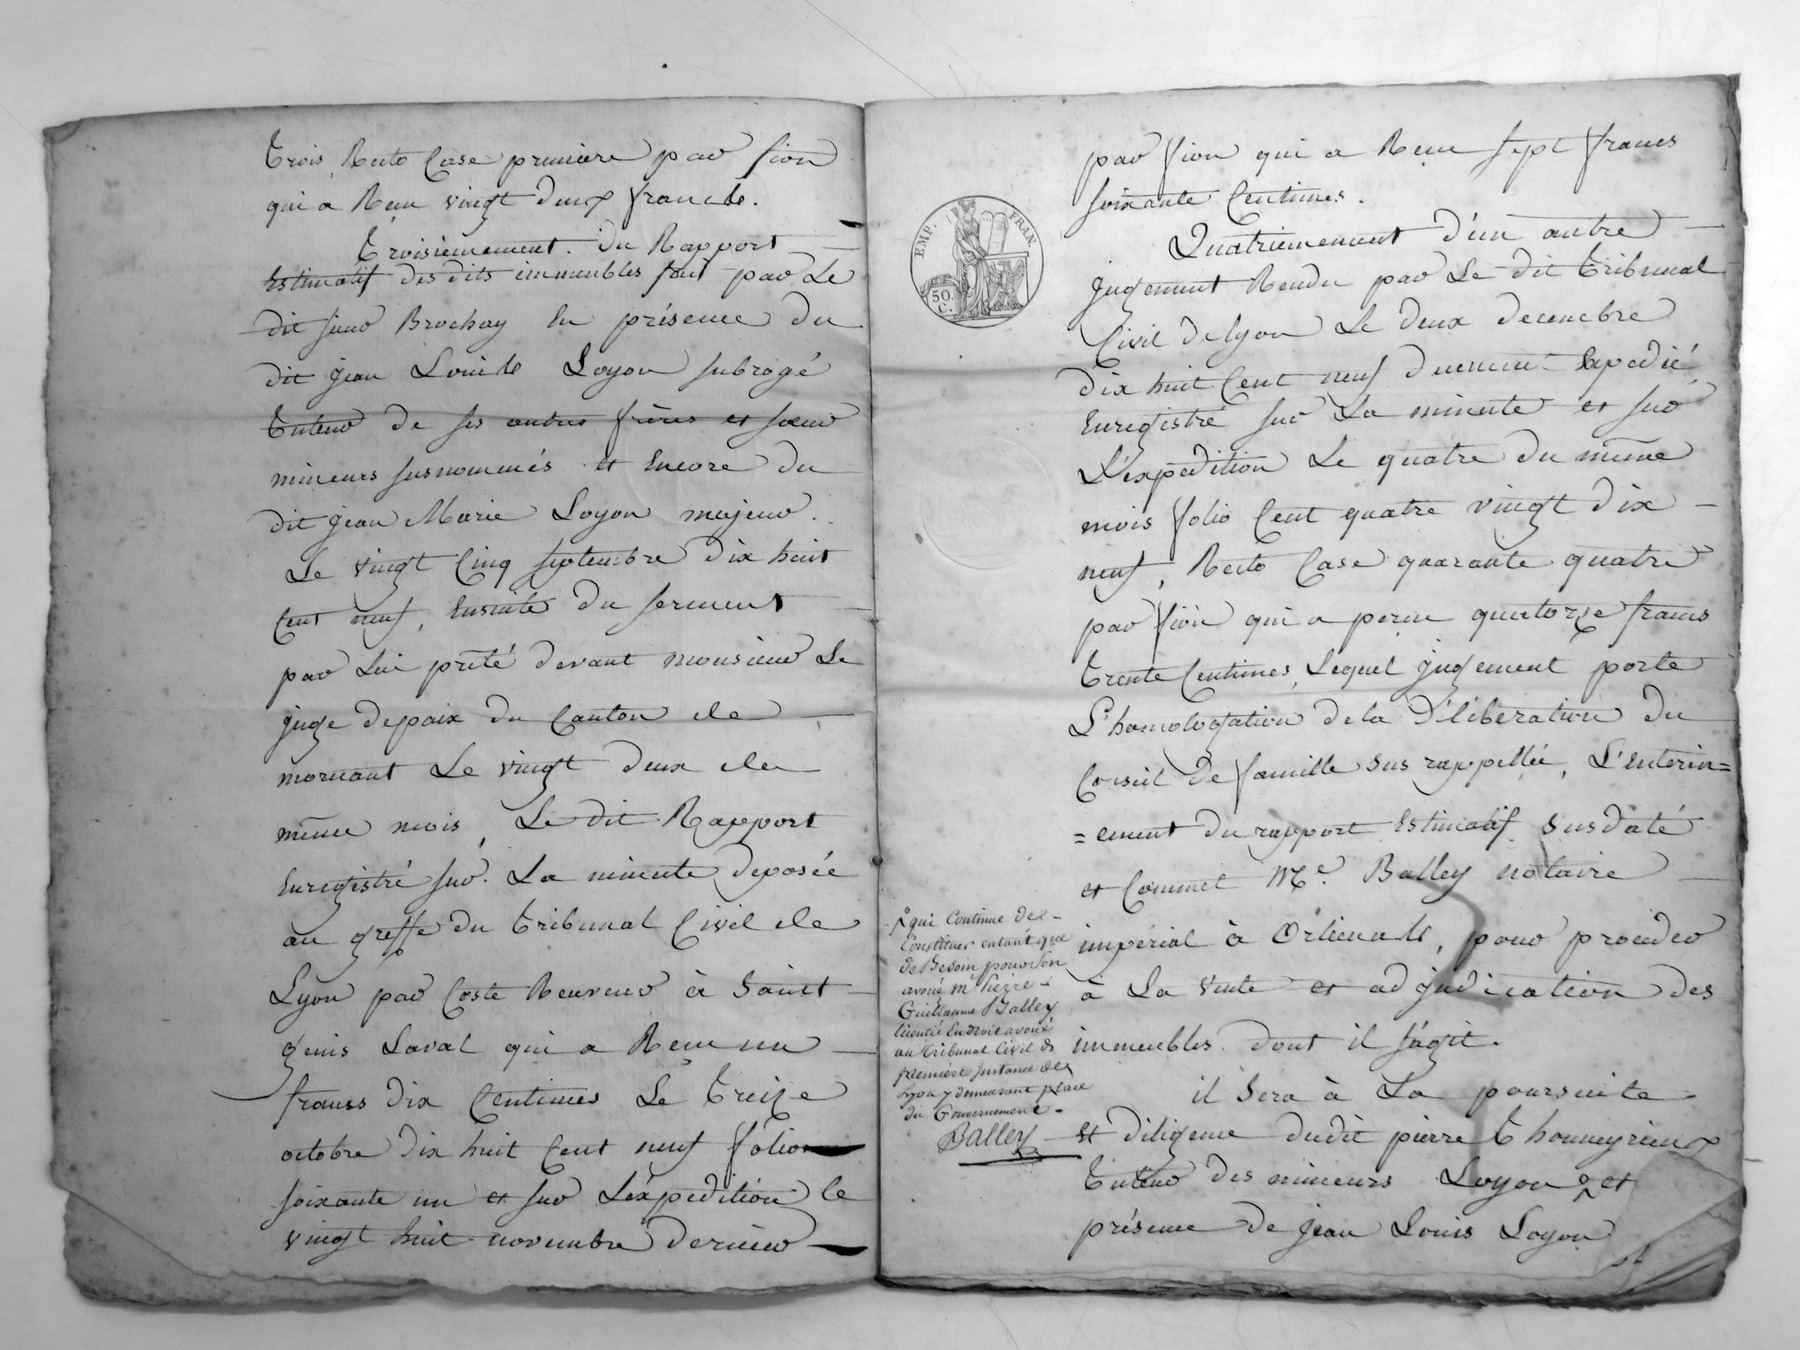 trois, Recto Case premiere par sion
qui a Reçu vingt deux francs.
Troisiemement. Du Rapport
Estimatif des dits immeubles fait par Le
dit sieur Brochay En présence du
dit jean Louis Loyon subrogé
Tuteur de ses autres frères et sœur
mineurs susnommés et Encore du
dit jean Marie Loyon majeur.
Le vingt Cinq septembre dix huit
Cent neuf, Ensuite du serment
par Lui prêté devant monsieur Le
juge depaix du Canton de
mornant Le vingt deux de
même mois, Le dit Rapport
Enregistré sur La minute deposée
au greffe du tribunal Civil de
Lyon par Coste Receveur à Saint
genis Laval qui a Reçu un
francs dix Centimes Le Treize
octobre dix huit Cent neuf folio
soixante un et sur L'éxpedition le
vingt huit novembre dernier
par sion qui a Reçu sept francs
soixante Centimes.
Quatriemement d'un autre
jugement Rendu par Le dit tribunal
Civil de lyon Le deux decembre
dix huit Cent neuf duement Expedié
Enregistré sur La minute et sur
L'éxpedition Le quatre du même
mois folio Cent quatre vingt dix
neuf, Recto Case quarante quatre
par sion qui a perçu quatorze francs
trente Centimes, Lequel jugement porte
L'homologation dela Délibération du
Conseil de famille sus rappellée, L'enterin=
=ement du rapport Estimatif susdaté
et Commet Me. Balley notaire
impérial à Orlienas, pour proceder
à La vente et adjudication des
immeubles dont il s'agit.
il sera à La poursuite
et diligence dudit pierre Thonneyrieux
Tuteur des mineurs Loyon et
présence de jean Louis Loyon
EMP. FRAN.
50.
C.
qui Continue de
Constituer entant que
de Besoin pour son
avoué m Pierre
Guillaume Balley
licentié En droit avoué
au tribunal Civil de
premiere Instance de
Lyon y demeurant place
du Gouvernement.
Balley